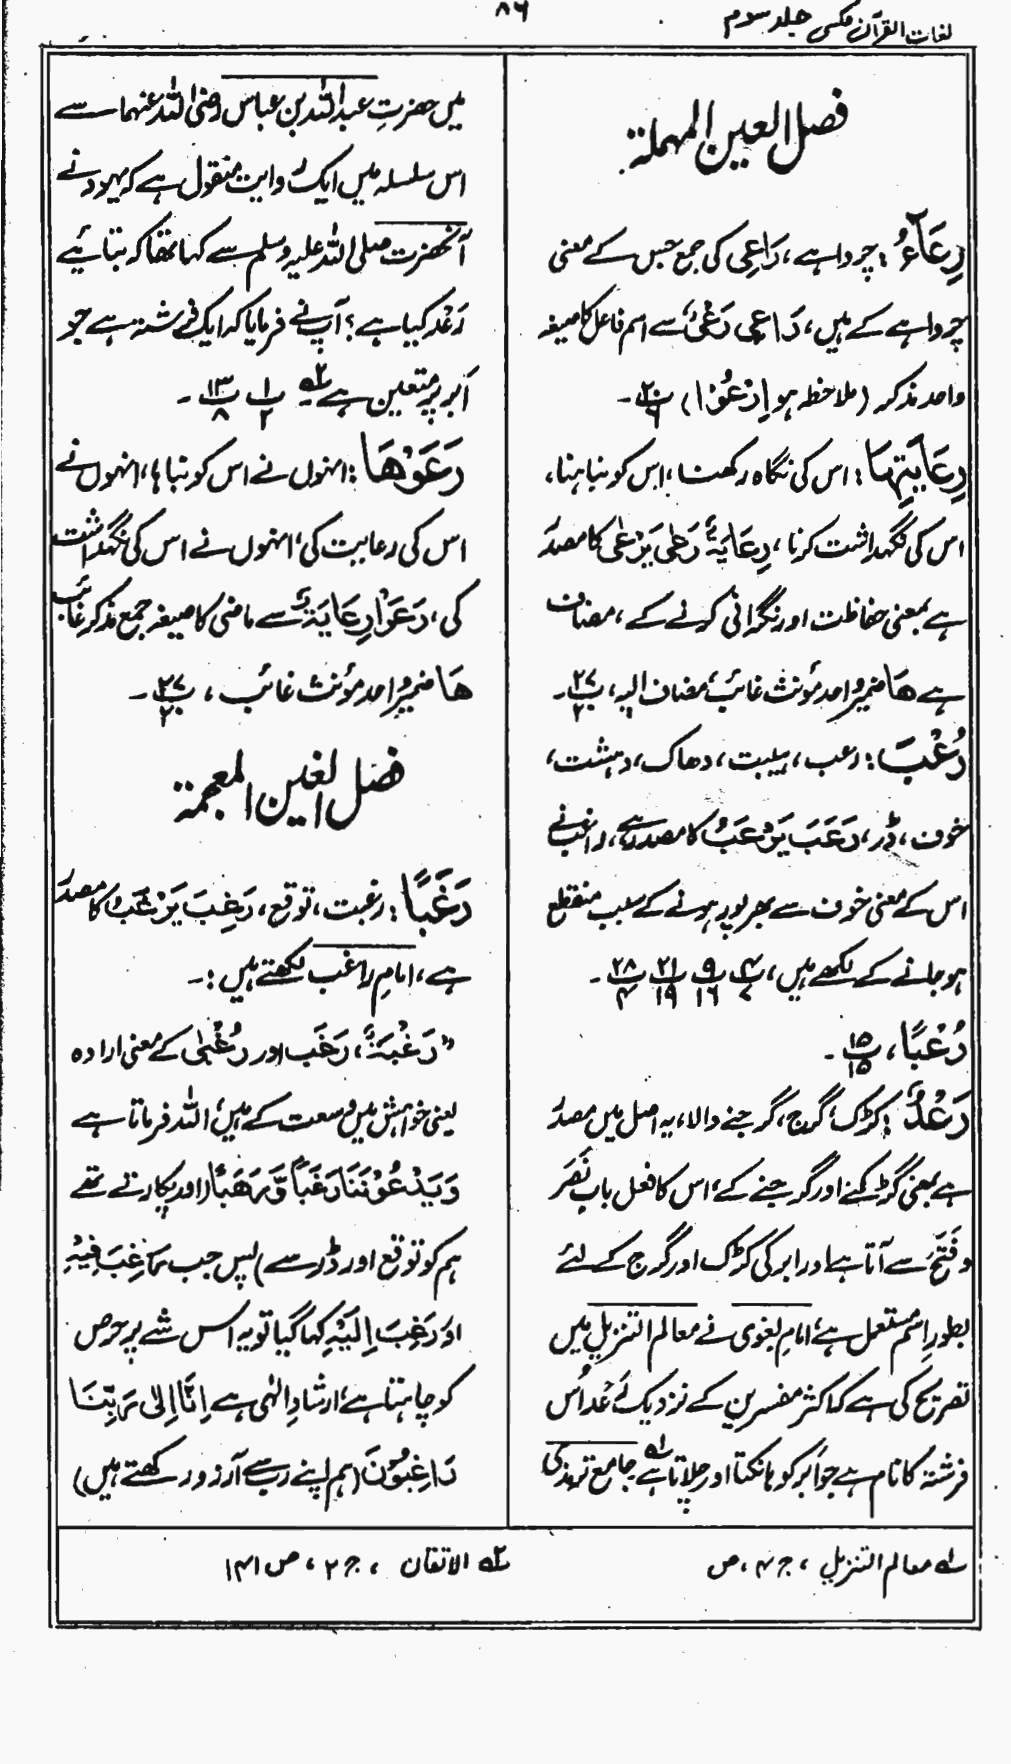 لغات القرآن مکسی جلد سوم
۸۶
فصل العین المہملة
رِعَآءُ: چرواہے، رَاعِی کی جمع جس کے معنی
چرواہے کے ہیں، رَاعِی رَعْیٌ سے اسم فاعل کا صیغہ
واحد مذکر (ملاحظہ ہو اِرْعَوْا) پ۲۰/۶۔
رِعَایَتِہَا: اس کی نگاہ رکھنا، اس کو نباہنا،
اس کی نگہداشت کرنا، رِعَایَةٌ رَعٰی یَرْعٰی کا مصدر
ہے بمعنی حفاظت اور نگرانی کرنے کے، مضاف
ہے ھَا ضمیر واحد مؤنث غائب، مضاف الیہ، پ۲۷/۲۰۔
رُعْبَ: رعب، ہیبت، دھاک، دہشت،
خوف، ڈر، رَعَبَ یَرْعَبُ کا مصدر ہے، راغب نے
اس کے معنی خوف سے بھرپور ہونے کے سبب منقطع
ہو جانے کے لکھے ہیں، پ۴/۷ پ۹/۱۶ پ۲۱/۱۹ پ۲۸/۴۔
رُعْبًا، پ۱۵/۱۵۔
رَعْدٌ: کڑک، گرج، گرجنے والا، یہ اصل میں مصدر
ہے بمعنی کڑکنے اور گرجنے کے، اس کا فعل باب نَصَرَ
و فَتَحَ سے آتا ہے اور ابر کی کڑک اور گرج کے لئے
بطور اسم مستعمل ہے، امام بغوی نے معالم التنزیل میں
تصریح کی ہے کہ اکثر مفسرین کے نزدیک رَعْد اُس
فرشتہ کا نام ہے جو ابر کو ہانکتا اور چلاتا ہے ؂۱ جامع ترمذی
میں حضرتِ عبداللہ بن عباس رضی اللہ عنہما سے
اس سلسلہ میں ایک روایت منقول ہے کہ یہود نے
آنحضرت صلی اللہ علیہ وسلم سے کہا تھا کہ بتائیے
رَعْد کیا ہے؟ آپ نے فرمایا کہ ایک فرشتہ ہے جو
ابر پر متعین ہے ؂۲ پ۱/۲ پ۱۳/۸۔
رَعَوْھَا: انہوں نے اس کو نباہا، انہوں نے
اس کی رعایت کی، انہوں نے اس کی نگہداشت
کی، رَعَوْا رِعَایَةٌ سے ماضی کا صیغہ جمع مذکر غائب
ھَا ضمیر واحد مؤنث غائب، پ۲۷/۲۰۔
فصل الغین المعجمة
رَغَبًا: رغبت، توقع، رَغِبَ یَرْغَبُ کا مصدر
ہے، امامِ راغب لکھتے ہیں:۔
"رَغْبَةٌ، رَغَب اور رُغْبٰی کے معنی ارادہ
یعنی خواہش میں وسعت کے ہیں، اللہ فرماتا ہے
وَیَدْعُوْنَنَا رَغَبًا وَّرَھَبًا (اور پکارتے تھے
ہم کو توقع اور ڈر سے) پس جب رَغِبَ فِیْہِ
اور رَغِبَ اِلَیْہِ کہا گیا تو یہ اس شے پر حرص
کو چاہتا ہے، ارشادِ الٰہی ہے اِنَّا اِلٰی رَبِّنَا
رَاغِبُوْنَ (ہم اپنے رب سے آرزو رکھتے ہیں)
؂۱ معالم التنزیل، ج ۴، ص
؂۲ الاتقان، ج ۲، ص ۱۴۱